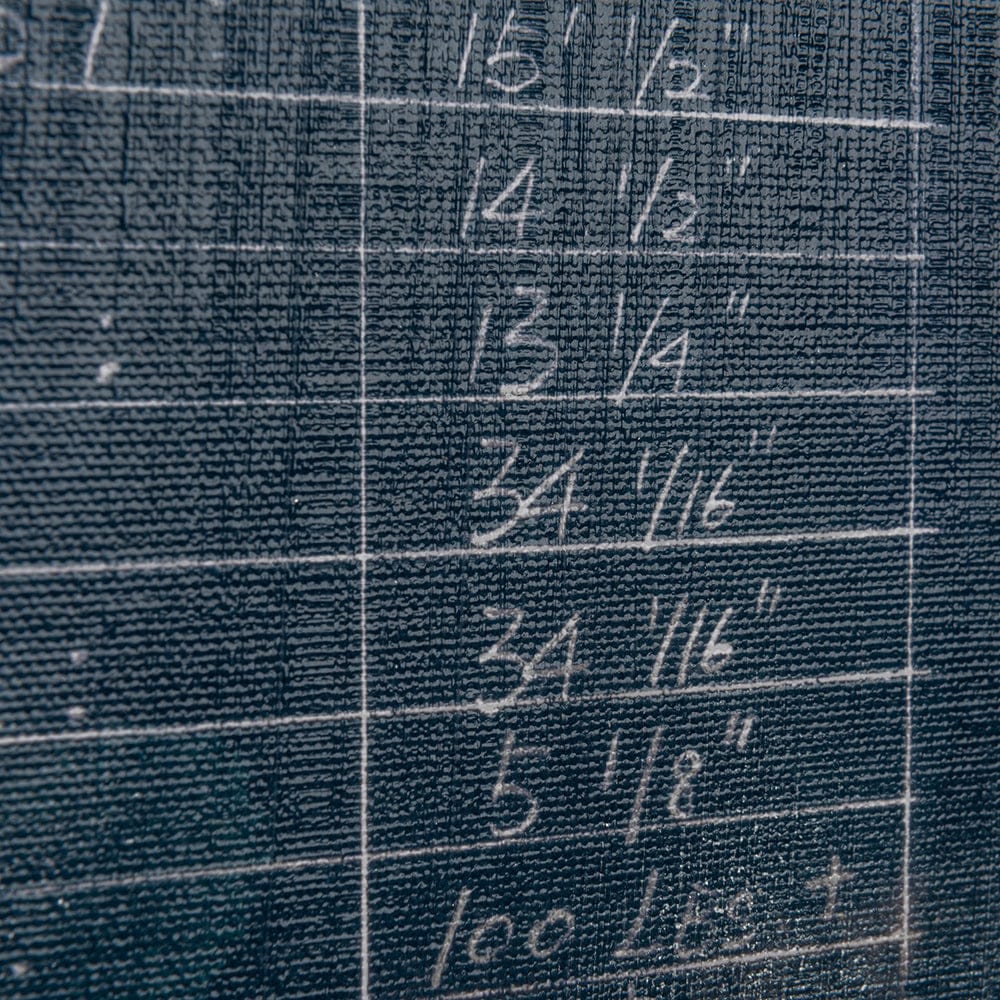 15' 1/2"
14 1/2"
13 1/4"
34 1/16"
34 1/16"
5 1/8"
100 Lbs. +